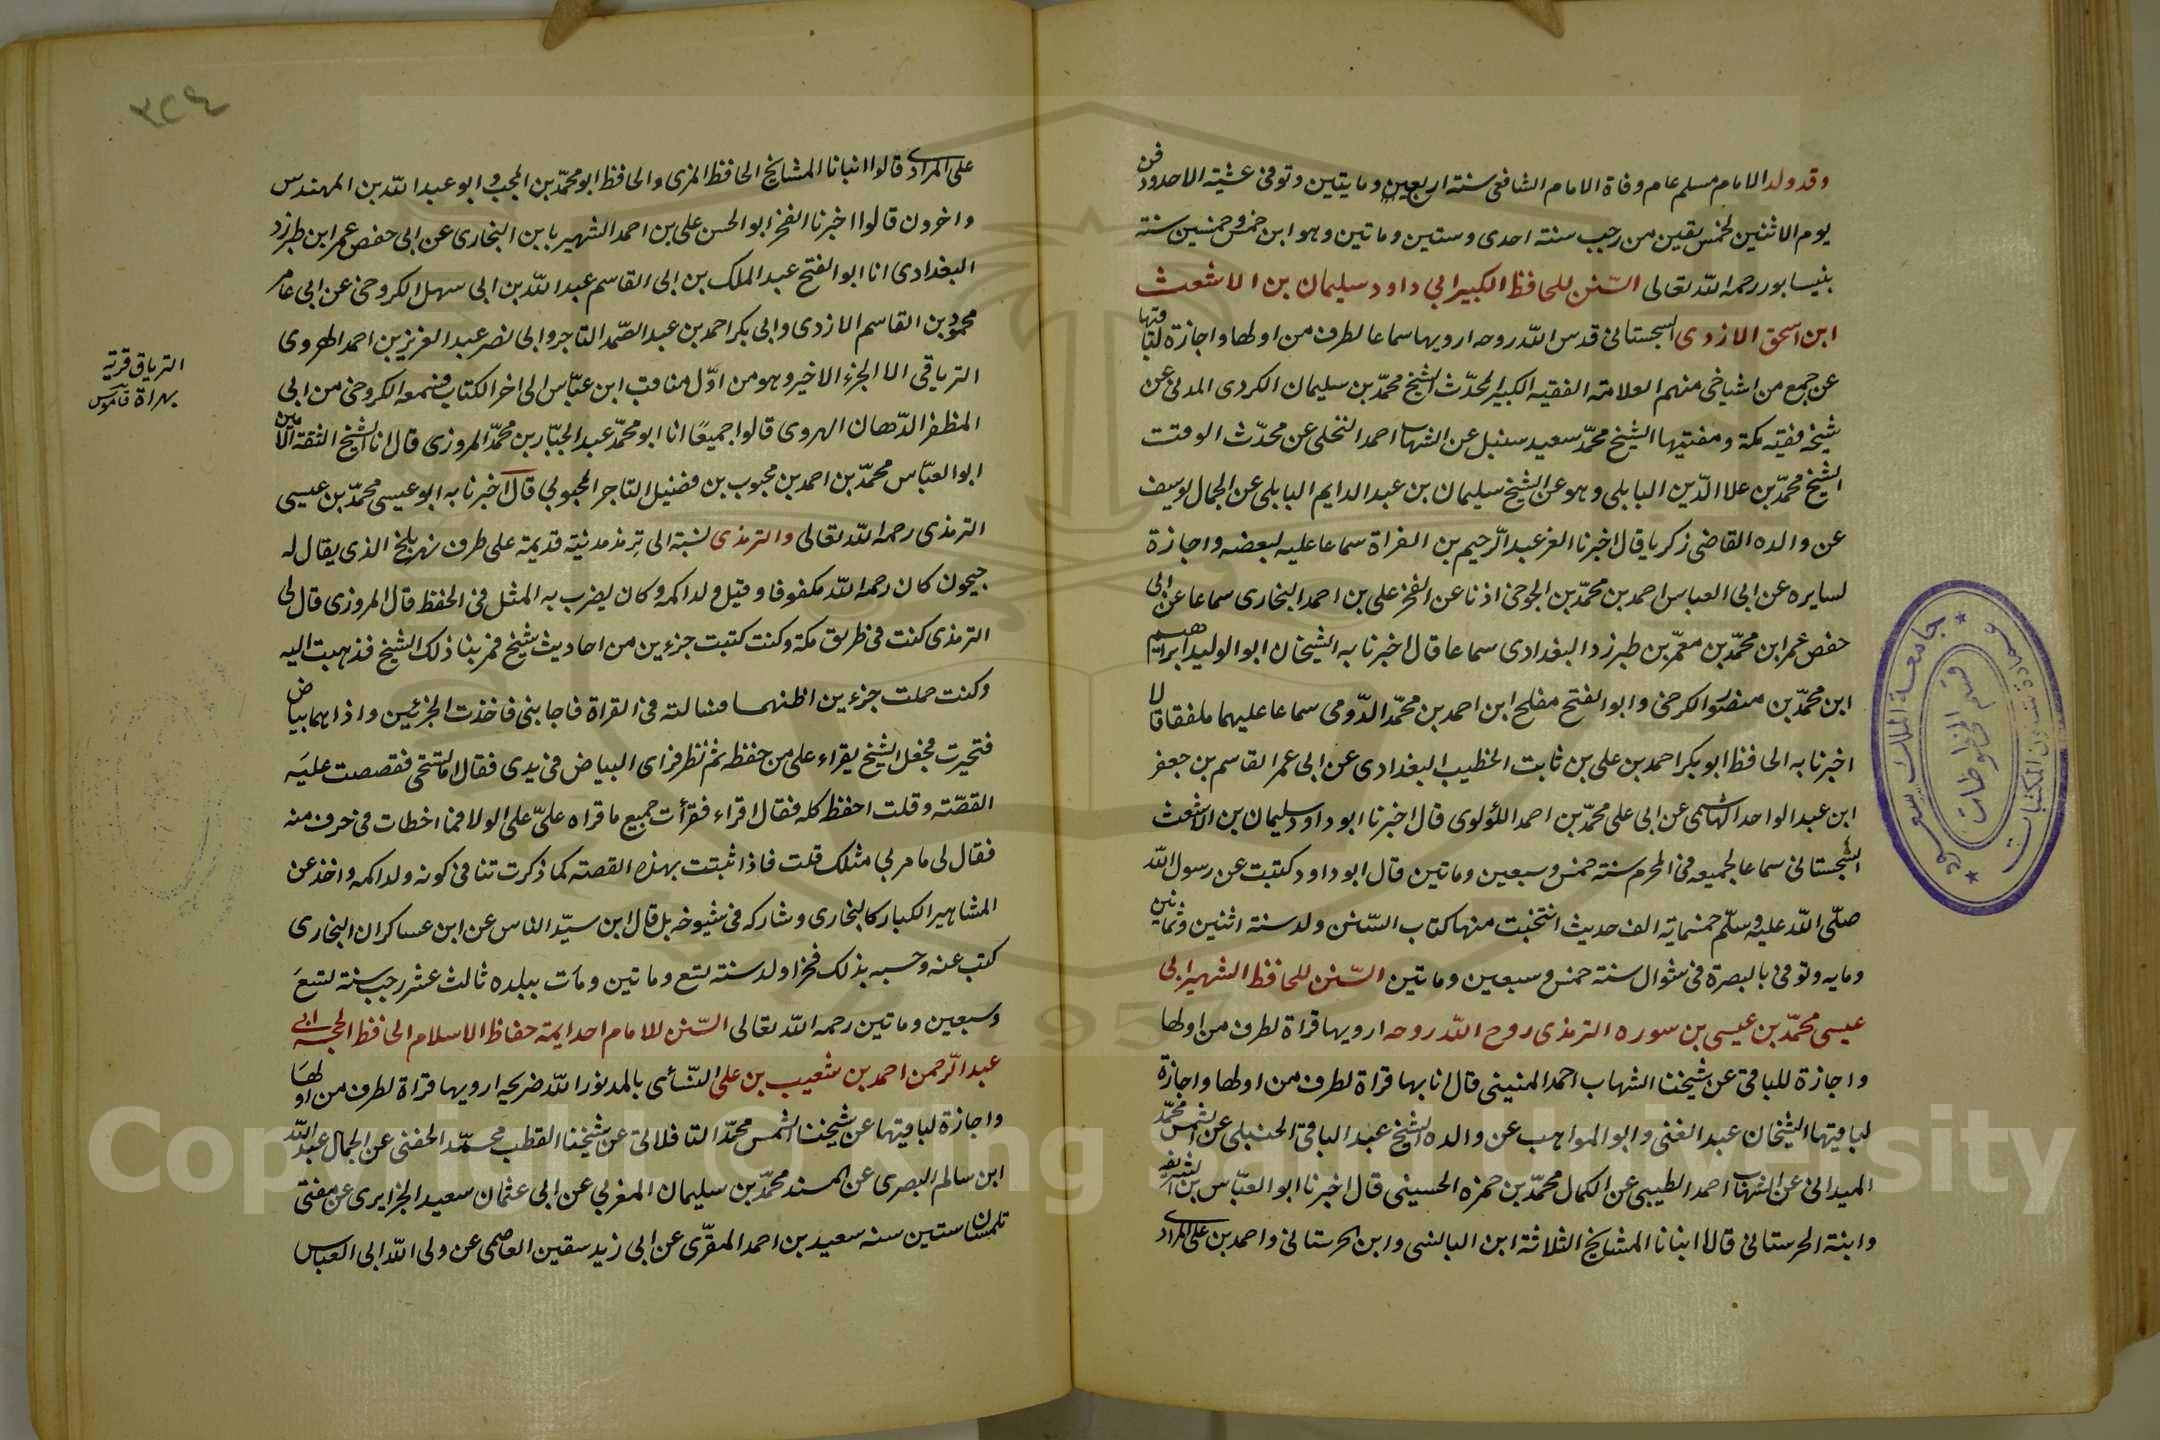 وقد ولد الامام مسلم عام وفاة الامام الشافعى سنة اربعين ومايتين وتوفى عشية الاحد ودفن
يوم الاثنين لخمس بقين من رجب سنة احدى وستين وماتين وهو ابن خمس وخمسين سنة
بنيسابور رحمه الله تعالى السنن للحافظ الكبير ابي داود سليمان بن الاشعث
ابن اسحق الازدى السجستانى قدس الله روحه ارويها سماعا لطرف من اولها واجازة لباقيها
عن جمع من اشياخى منهم العلامة الفقيه الكبير المحدّث الشيخ محمّد بن سليمان الكردى المدنى عن
شيخه فقيه مكة ومفتيها الشيخ محمّد سعيد سنبل عن الشهاب احمد النخلى عن محدّث الوقت
الشيخ محمّد بن علا الدّين البابلى وهو عن الشيخ سليمان بن عبد الدايم البابلى عن الجمال يوسف
عن والده القاضى زكريا قال اخبرنا العز عبد الرّحيم بن الفراة سماعا عليه لبعضه واجازة
لسايره عن ابى العباس احمد بن محمّد بن الجوخى اذنا عن الفخر على بن احمد البخارى سماعا عن ابى
حفص عمر ابن محمّد بن معمّر بن طبرزد البغدادى سماعا قال اخبرنا به الشيخان ابو الوليد ابراهيم
ابن محمّد بن منصور الكرخى وابو الفتح مفلح ابن احمد بن محمّد الدّومى سماعا عليهما ملفقا قالا
اخبرنا به الحافظ ابو بكر احمد بن على بن ثابت الخطيب البغدادى عن ابى عمر القاسم بن جعفر
ابن عبد الواحد الهاشمى عن ابى على محمّد بن احمد اللؤلوى قال اخبرنا ابو داود سليمان بن الاشعث
السّجستانى سماعا لجميعه فى المحرم سنة خمس وسبعين وماتين قال ابو داود كتبت عن رسول الله
صلّى الله عليه وسلّم خمسماية الف حديث انتخبت منها كتاب السّنن ولد سنة اثنين وثمانين
ومايه وتوفى بالبصرة فى شوال سنة خمس وسبعين وماتين السّنن للحافظ الشهير ابى
عيسى محمّد بن عيسى بن سوره الترمذى روح الله روحه ارويها قراة لطرف من اولها
واجازة للباقى عن شيخنا الشهاب احمد المنينى قال انا بها قراة لطرف من اولها واجازة
لباقيها الشيخان عبد الغنى وابو المواهب عن والده الشيخ عبد الباقى الحنبلى عن الشمس محمّد
الميدانى عن الشهاب احمد الطيبى عن الكمال محمّد بن حمزه الحسينى قال اخبرنا ابو العبّاس بن الشريفه
وابنة الحرستانى قالا انبانا المشايخ الثلاثة ابن البالسى وابن الحرستانى واحمد بن على المرادى
٣٢٤
على المرادى قالوا انبانا المشايخ الحافظ المزى والحافظ ابو محمّد بن المحب وابو عبد الله بن المهندس
واخرون قالوا اخبرنا الفخر ابو الحسن على بن احمد الشهير بابن البخارى عن ابى حفص عمر ابن طبرزد
البغدادى انا ابو الفتح عبد الملك بن ابى القاسم عبد الله بن ابى سهل الكروخى عن ابى عامر
محمود بن القاسم الازدى وابى بكر احمد بن عبد الصّمد التاجر وابى نصر عبد العزيز بن احمد الهروى
الترياقى الا الجزء الاخير وهو من اوّل مناقب ابن عبّاس الى اخر الكتاب فسمعه الكروخى من ابى
المظفر الدّهان الهروى قالوا جميعًا انا ابو محمّد عبد الجبّار بن محمّد المروزى قال انا الشيخ الثقة الامين
ابو العبّاس محمّد بن احمد بن محبوب بن فضيل التاجر المحبوبي قال اخبرنا به ابو عيسى محمّد بن عيسى
الترمذى رحمه الله تعالى والترمذى نسبة الى تِرمذ مدينة قديمة على طرف نهر بلخ الذى يقال له
جيحون كان رحمه الله مكفوفا وقيل ولد اكمه وكان يضرب به المثل فى الحفظ قال المروزى قال لى
الترمذى كنت فى طريق مكة وكنت كتبت جزءين من احاديث شيخ فمر بنا ذلك الشيخ فذهبت اليه
وكنت حملت جزءين اظنهما فسالته فى القراة فاجابنى فاخذت الجزئين واذاهما بياض
فتحيرت فجعل الشيخ يقراء على من حفظه ثم نظر فراى البياض فى يدى فقال اما تستحى فقصصت عليه
القصّة وقلت احفظ كله فقال اقراء فقرأت جميع ما قراه علىّ على الولا فما اخطات فى حرف منه
فقال لى ما مر بي مثلك قلت فاذا ثبتت بهذه القصة كما ذكرت تنافى كونه ولد اكمه واخذ عن
المشاهير الكبار كالبخارى وشاركه فى شيوخه بل قال ابن سيّد الناس عن ابن عساكر ان البخارى
كتب عنه وحسبه بذلك فخرا ولد سنة تسع وماتين ومات ببلده ثالث عشر رجب سنة تسع
وسبعين وماتين رحمه الله تعالى السّنن للامام احد ايمة حفاظ الاسلام الحافظ الحجه ابى
عبد الرّحمن احمد بن شعيب بن على النّسائى بالمد نور الله ضريحه ارويها قراة لطرف من اولها
واجازة لباقيتها عن شيخنا الشمس محمّد التافلاتى عن شيخنا القطب محمّد الحفنى عن الجمال عبد الله
ابن سالم البصرى عن المسند محمّد بن سليمان المغربي عن ابى عثمان سعيد الجزايرى عن مفتى
تلمسان ستين سنه سعيد بن احمد المقرّى عن ابى زيد سقين العاصمى عن ولى الله ابى العباس
الترياق قرية
بهراة قاموس
جامعة الملك سعود
عمادة شئون المكتبات
قسم المخطوطات
Copyright © King Saud University